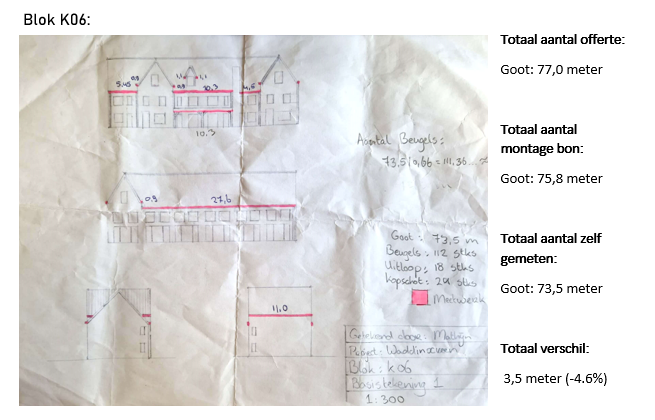 Blok K06:
Totaal aantal offerte:
Goot: 77,0 meter
Totaal aantal
montage bon:
Goot: 75,8 meter
Totaal aantal zelf
gemeten:
Goot: 73,5 meter
Totaal verschil:
3,5 meter (-4.6%)
5,45
0,9
1,1
1,1
0,9
10,3
4,5
10.3
Aantal Beugels:
73,5/0,66 = 111,36...
0,9
27,6
Goot: 73,5 m
Beugels: 112 stks
Uitloop: 18 stks
Kopschot: 24 stks
Meetwerk
11,0
Getekend door:
Project: Waddinxveen
Blok: K06
Basistekening 1
1:300